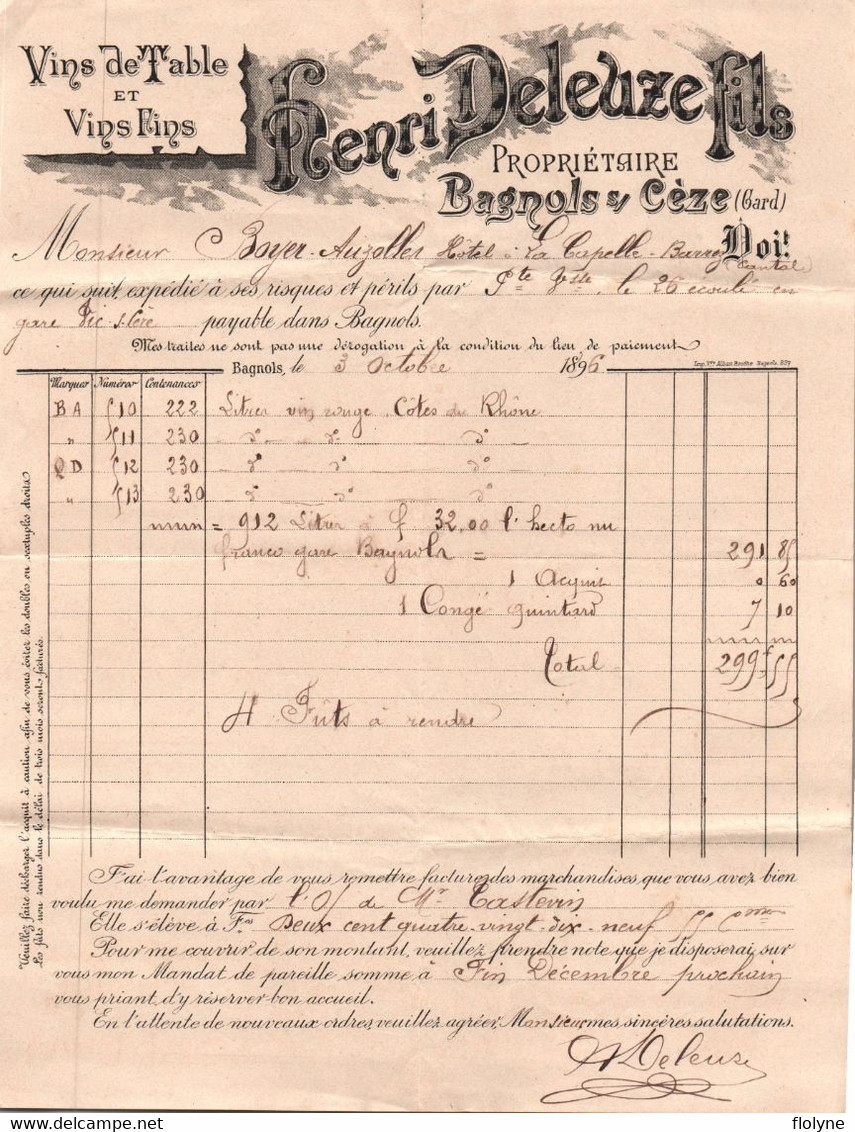 Vins de Table
ET
Vins Fins
Henri Deleuze fils
PROPRIÉTAIRE
Bagnols s/ Cèze (Gard)
Monsieur Boyer-Auzolles Hôtel à La Capelle-Barrez Doit
(Cantal)
ce qui suit, expédié à ses risques et périls par Pte Vsse, le 26 écoulé en
gare Vic-s-Cère payable dans Bagnols.
Mes traites ne sont pas une dérogation à la condition du lieu de paiement
Bagnols, le 3 Octobre 1896
Imp. Vve Alban Broche Bagnols, 829
Marques Numéros Contenances
BA 510 222 Litres vin rouge Côtes du Rhône
" 511 230 - d° - d° - d°
QD 512 230 - d° d° d°
" 513 230 - d° d° d°
= 912 Litres à f 32,00 l'hecto nu
franco gare Bagnols = 291 85
1 Acquit 0 60
1 Congé 7 10
Total 299f 55
4 Fûts à rendre
Veuillez faire décharger l'acquit à caution afin de vous éviter les doubles ou sextuples droits
Les fûts non rendus dans le délai de trois mois seront facturés.
J'ai l'avantage de vous remettre facture des marchandises que vous avez bien
voulu me demander par l'O/ de Mr Tastevin
Elle s'élève à Fcs Deux cent quatre-vingt-dix-neuf 55 Cmes
Pour me couvrir de son montant, veuillez prendre note que je disposerai sur
vous mon Mandat de pareille somme à Fin Décembre prochain
vous priant d'y réserver bon accueil.
En l'attente de nouveaux ordres, veuillez agréer, Monsieur, mes sincères salutations.
H Deleuze
flolyne